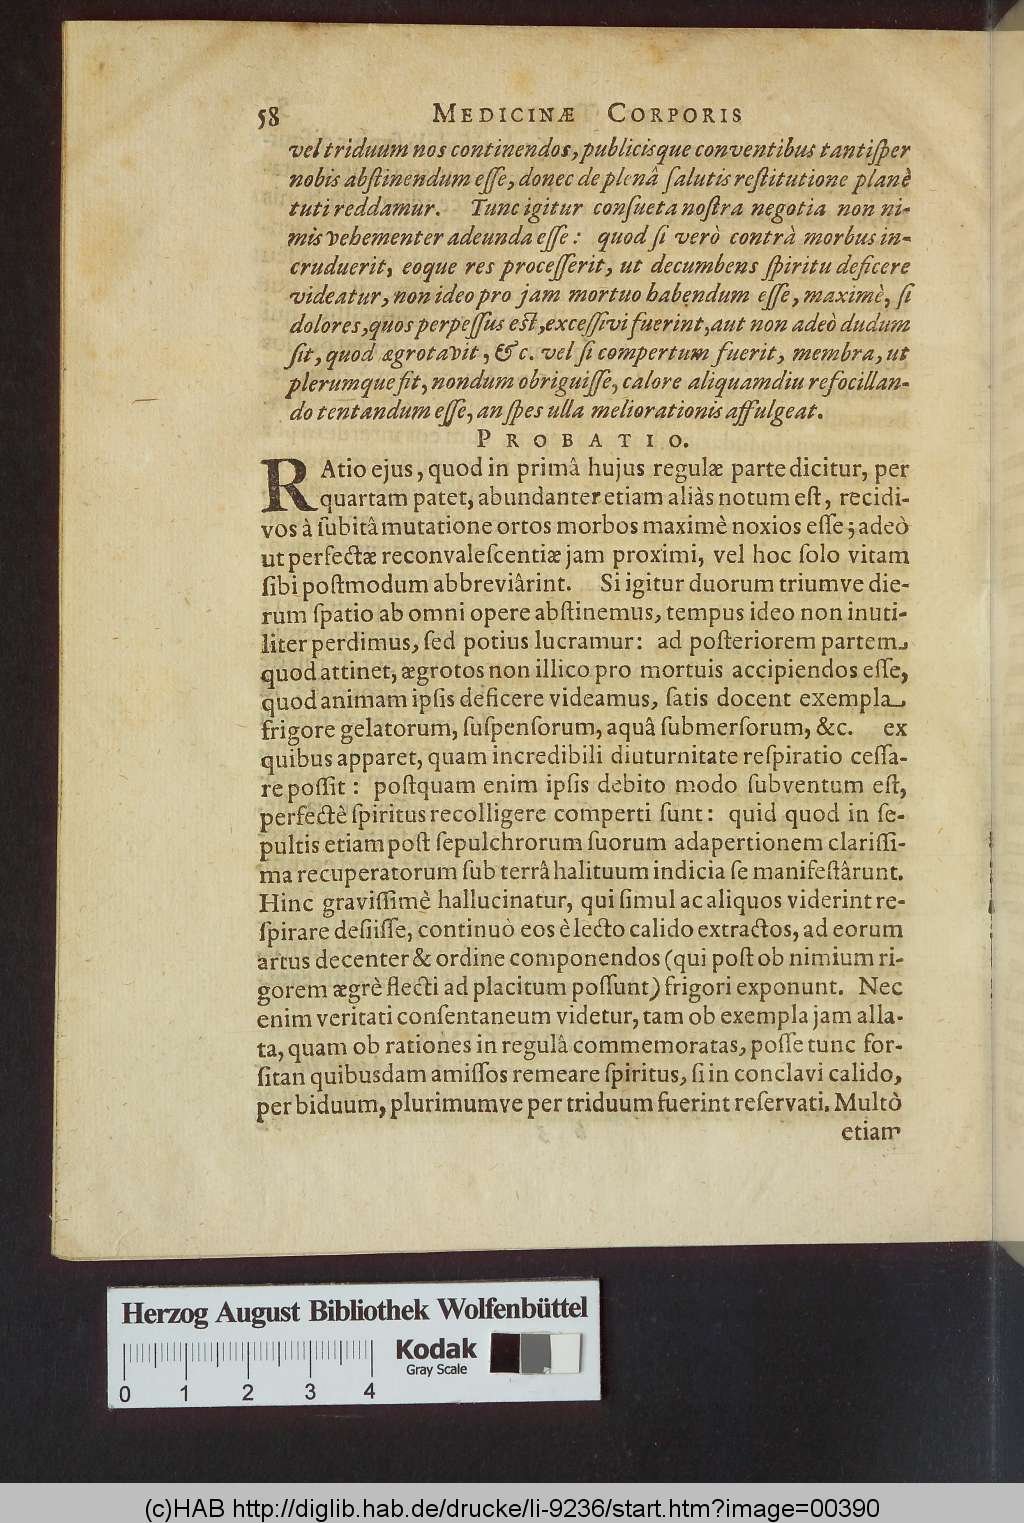 58 MEDICINÆ CORPORIS
vel triduum nos continendos, publicisque conventibus tantiſper
nobis abſtinendum eſſe, donec de plenâ ſalutis reſtitutione planè
tuti reddamur. Tunc igitur conſueta noſtra negotia non ni-
mis vehementer adeunda eſſe: quod ſi verò contrà morbus in-
cruduerit, eoque res proceſſerit, ut decumbens ſpiritu deficere
videatur, non ideo pro jam mortuo habendum eſſe, maximè, ſi
dolores, quos perpeſſus eſt, exceſſivi fuerint, aut non adeò dudum
ſit, quod ægrotavit, & c. vel ſi compertum fuerit, membra, ut
plerumque fit, nondum obriguiſſe, calore aliquamdiu refocillan-
do tentandum eſſe, an ſpes ulla meliorationis affulgeat.
PROBATIO.
RAtio ejus, quod in primâ hujus regulæ parte dicitur, per
quartam patet, abundanter etiam aliàs notum eſt, recidi-
vos à ſubitâ mutatione ortos morbos maximè noxios eſſe; adeò
ut perfectæ reconvaleſcentiæ jam proximi, vel hoc ſolo vitam
ſibi poſtmodum abbreviârint. Si igitur duorum triumve die-
rum ſpatio ab omni opere abſtinemus, tempus ideo non inuti-
liter perdimus, ſed potius lucramur: ad poſteriorem partem
quod attinet, ægrotos non illico pro mortuis accipiendos eſſe,
quod animam ipſis deficere videamus, ſatis docent exempla
frigore gelatorum, ſuſpenſorum, aquâ ſubmerſorum, &c. ex
quibus apparet, quam incredibili diuturnitate reſpiratio ceſſa-
re poſſit: poſtquam enim ipſis debito modo ſubventum eſt,
perfectè ſpiritus recolligere comperti ſunt: quid quod in ſe-
pultis etiam poſt ſepulchrorum ſuorum adapertionem clariſſi-
ma recuperatorum ſub terrâ halituum indicia ſe manifeſtârunt.
Hinc graviſſimè hallucinatur, qui ſimul ac aliquos viderint re-
ſpirare deſiiſſe, continuò eos è lecto calido extractos, ad eorum
artus decenter & ordine componendos (qui poſt ob nimium ri-
gorem ægrè flecti ad placitum poſſunt) frigori exponunt. Nec
enim veritati conſentaneum videtur, tam ob exempla jam alla-
ta, quam ob rationes in regulâ commemoratas, poſſe tunc for-
ſitan quibusdam amiſſos remeare ſpiritus, ſi in conclavi calido,
per biduum, plurimumve per triduum fuerint reſervati. Multò
etiam
Herzog August Bibliothek Wolfenbüttel
Kodak
Gray Scale
0 1 2 3 4
(c)HAB http://diglib.hab.de/drucke/li-9236/start.htm?image=00390